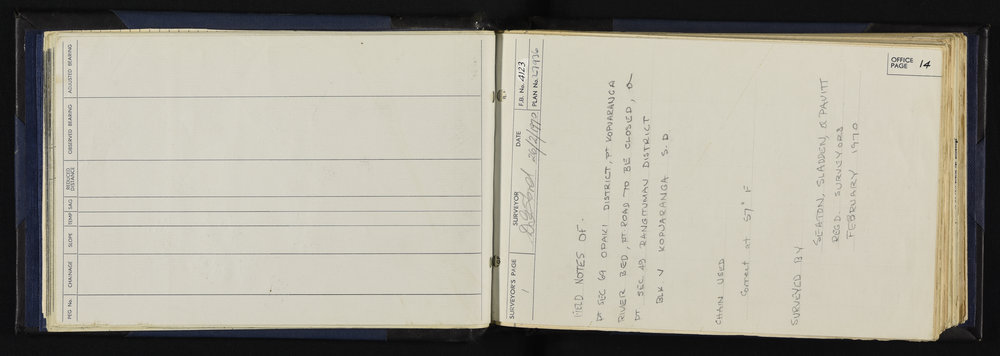 PEG No. CHAINAGE SLOPE TEMP SAG REDUCED DISTANCE OBSERVED BEARING ADJUSTED BEARING
SURVEYOR'S PAGE SURVEYOR DATE F.B. No. 4123
1 26/2/1970 PLAN No. L7936
OFFICE PAGE 14
FIELD NOTES OF.
PT SEC 69 OPAKI DISTRICT, PT KOPUARANGA
RIVER BED, PT ROAD TO BE CLOSED, &
PT SEC 49 RANGITUMAU DISTRICT
BLK V KOPUARANGA S. D
CHAIN USED
Correct at 57° F
SURVEYED BY
SEATON, SLADDEN, & PAVITT
REGD. SURVEYORS
FEBRUARY 1970